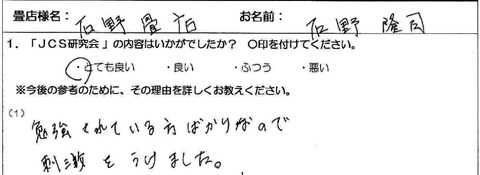 畳店様名: 石野畳店 お名前: 石野 隆司
1. 「JCS研究会」の内容はいかがでしたか? ○印を付けてください。
・とても良い ・良い ・ふつう ・悪い
※今後の参考のために、その理由を詳しくお教えください。
(1)
勉強されている方ばかりなので
刺激をうけました。